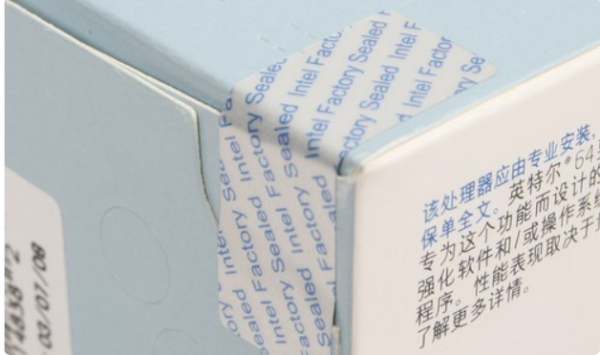 Intel Factory Sealed Intel Factory Sealed
Intel Factory Sealed Intel Factory Sealed
Intel Factory Sealed Intel Factory Sealed
该处理器应由专业安装,
保单全文。英特尔® 64
专为这个功能而设计的
强化软件和/或操作系统
程序。性能表现取决于
了解更多详情。
03/07/08